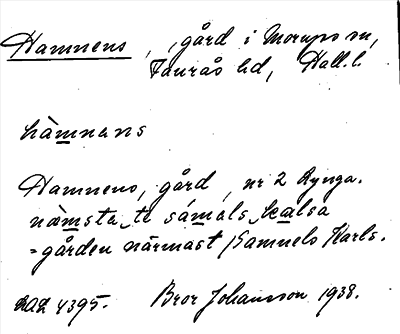 Hamnens, , gård i Morups sn,
Faurås hd, Hall.l.
hàmnans
Hamnens, gård, nr 2 Lynga.
nàmsta te sámals kalsa
=gården närmast Samuels Karls.
DAL 4395. Bror Johansson 1938.